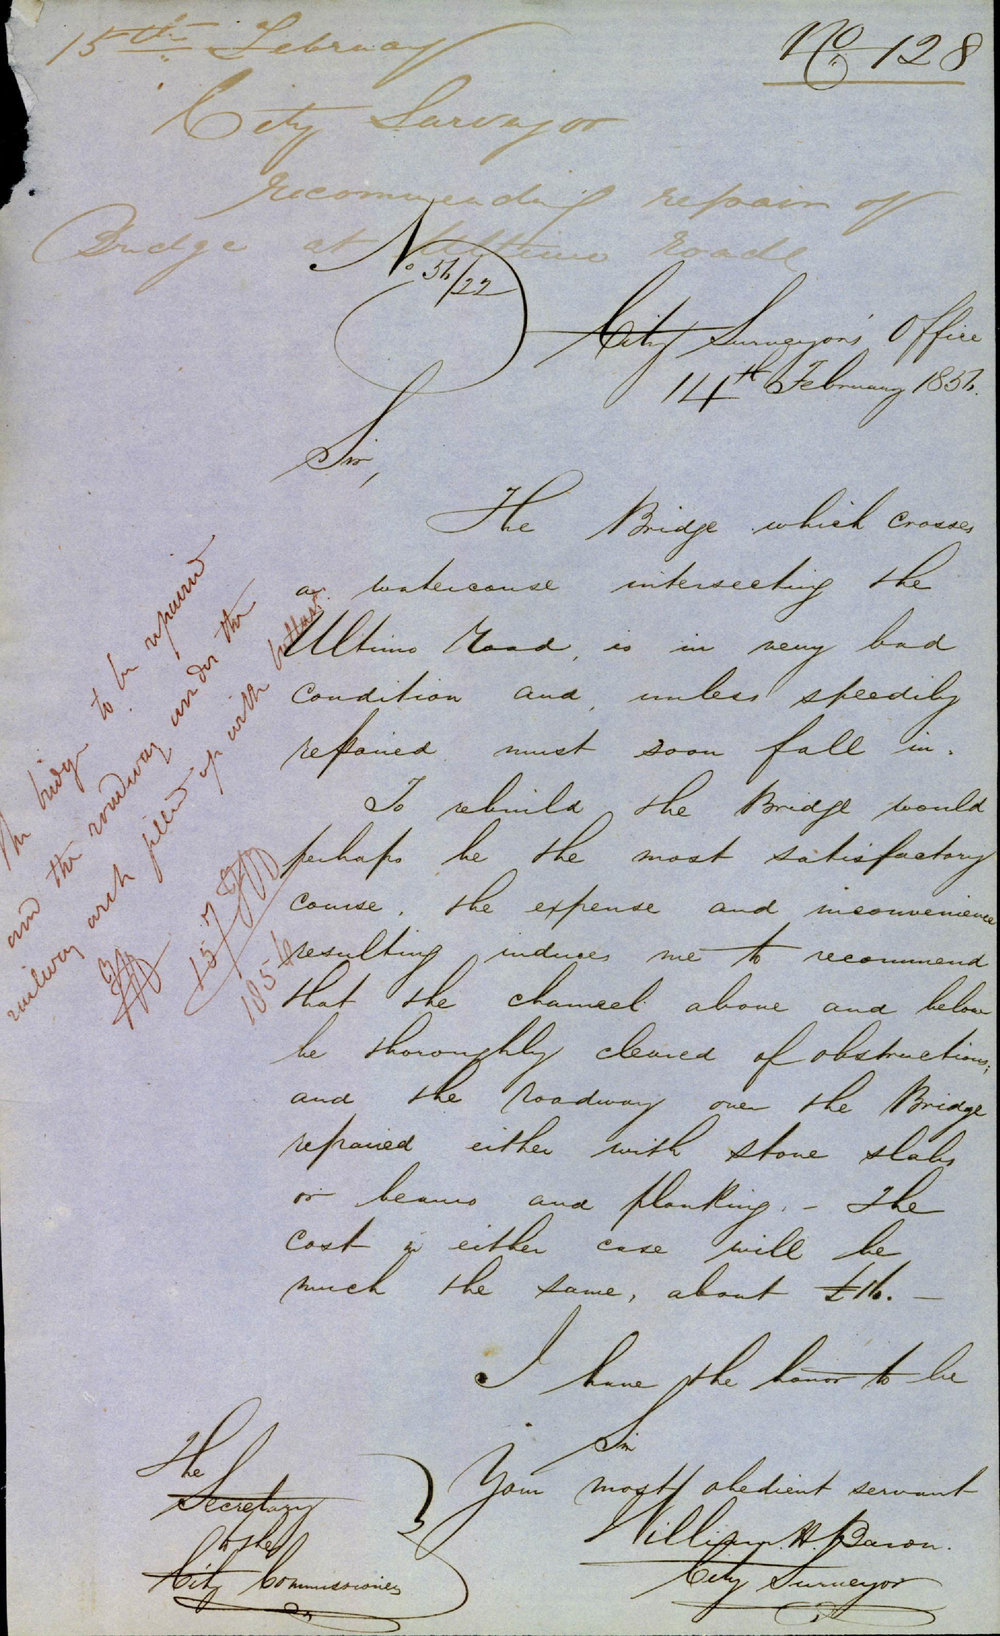 No. 128
15th February
City Surveyor
recommending repair of
Bridge at Ultimo Road
No. 56/22
City Surveyor's Office
14th February 1856.
Sir,
The Bridge which crosses
a watercourse intersecting the
Ultimo Road, is in very bad
condition and, unless speedily
repaired must soon fall in.
To rebuild the Bridge would
perhaps be the most satisfactory
course, the expense and inconvenience
resulting induces me to recommend
that the channel above and below
be thoroughly cleared of obstructions;
and the roadway over the Bridge
repaired either with stone slabs
or beams and planking. – The
cost in either case will be
much the same, about £16. –
I have the honor to be
Sir
Your most obedient servant
William H. Baron.
City Surveyor
The
Secretary
to the
City Commissioners
The bridge to be repaired
and the roadway under the
railway arch filled up with
15/2
1856